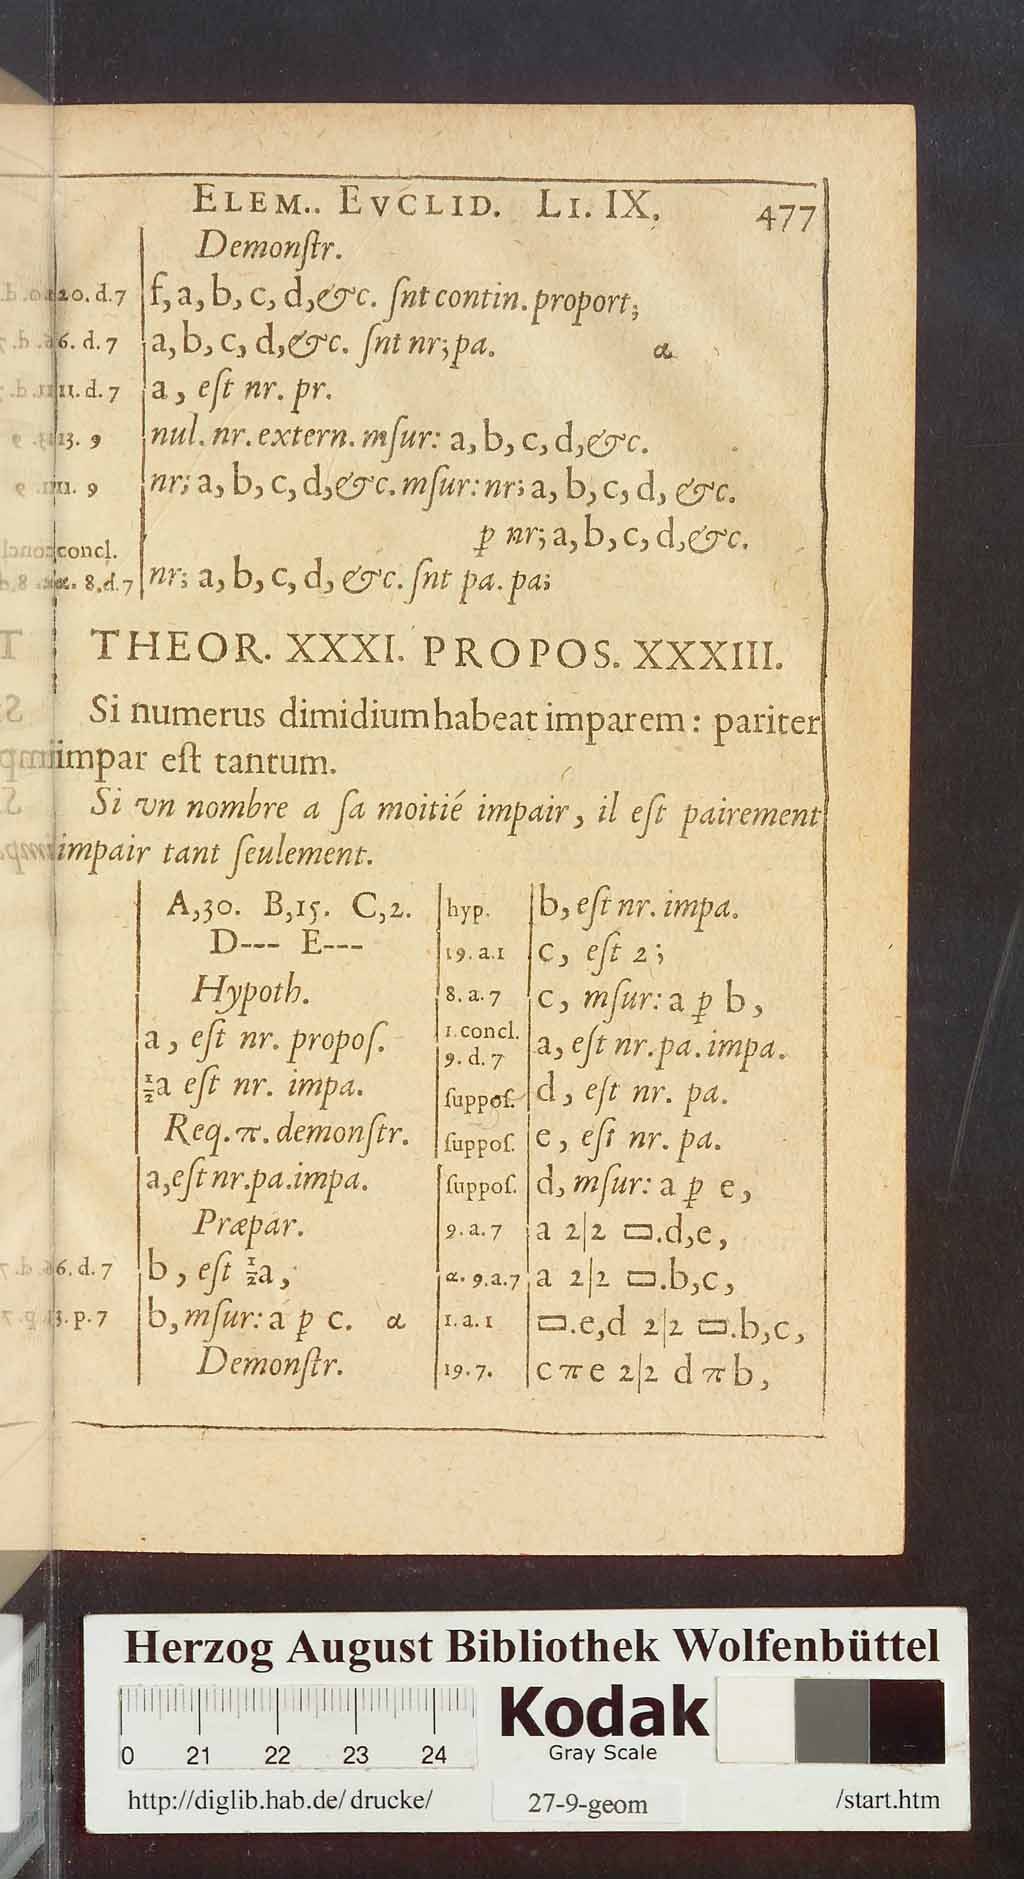 ELEM.. EVCLID. LI. IX. 477
Demonſtr.
20. d. 7 f, a, b, c, d, &c. ſnt contin. proport;
6. d. 7 a, b, c, d, &c. ſnt nr; pa. α
11. d. 7 a, eſt nr. pr.
13. 9 nul. nr. extern. mſur: a, b, c, d, &c.
11. 9 nr; a, b, c, d, &c. mſur: nr; a, b, c, d, &c.
ꝑ nr; a, b, c, d, &c.
concl.
α. 8. d. 7 nr; a, b, c, d, &c. ſnt pa. pa;
THEOR. XXXI. PROPOS. XXXIII.
Si numerus dimidium habeat imparem : pariter
impar eſt tantum.
Si vn nombre a ſa moitié impair, il eſt pairement
impair tant ſeulement.
A,30. B,15. C,2.
D--- E---
Hypoth.
a, eſt nr. propoſ.
½a eſt nr. impa.
Req. π. demonſtr.
a, eſt nr. pa. impa.
Præpar.
6. d. 7 b, eſt ½a,
3. p. 7 b, mſur: a ꝑ c. α
Demonſtr.
hyp. b, eſt nr. impa.
19. a. 1 c, eſt 2;
8. a. 7 c, mſur: a ꝑ b,
1. concl.
9. d. 7 a, eſt nr. pa. impa.
ſuppoſ. d, eſt nr. pa.
ſuppoſ. e, eſt nr. pa.
ſuppoſ. d, mſur: a ꝑ e,
9. a. 7 a 2|2 ▭.d,e,
α. 9. a. 7 a 2|2 ▭.b,c,
1. a. 1 ▭.e,d 2|2 ▭.b,c,
19. 7. c π e 2|2 d π b,
Herzog August Bibliothek Wolfenbüttel
0 21 22 23 24
Kodak
Gray Scale
http://diglib.hab.de/drucke/ 27-9-geom /start.htm